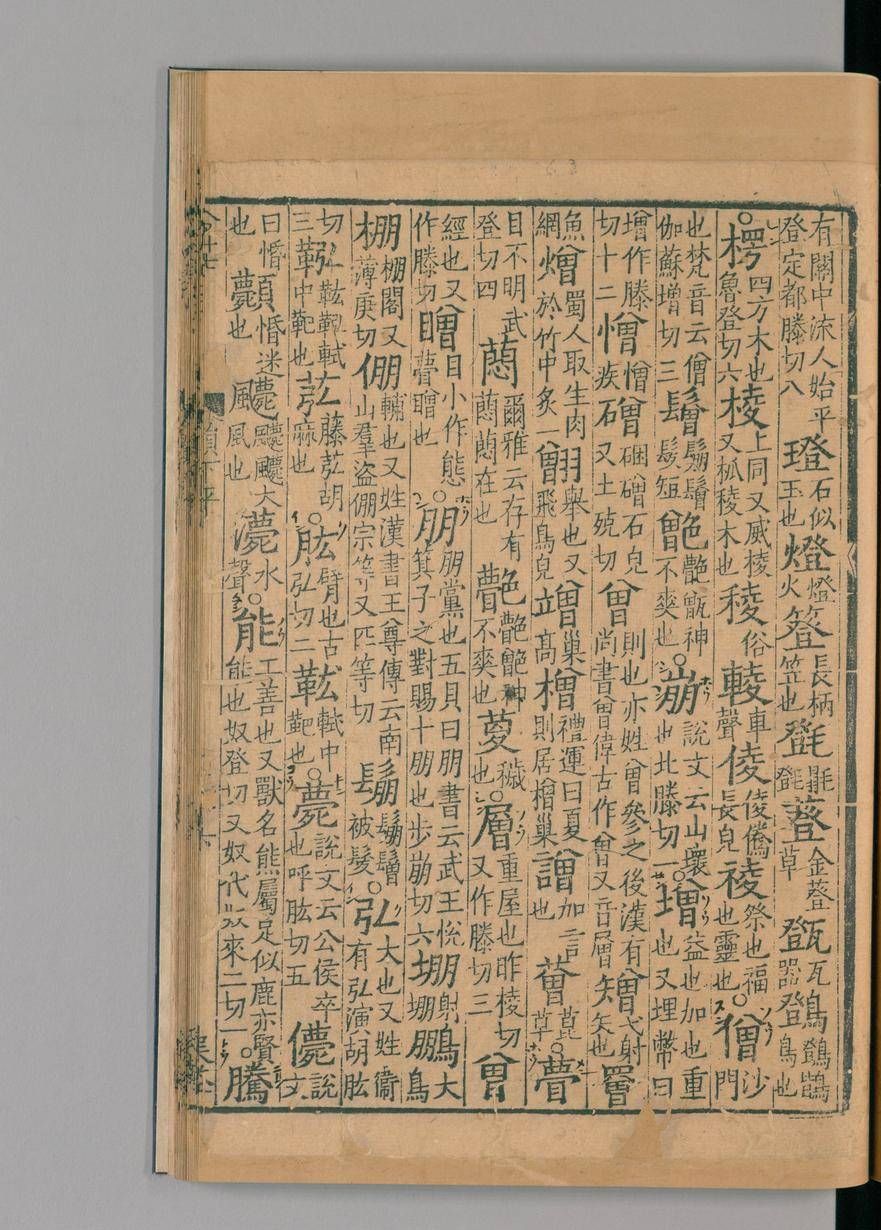 有關中流人始平登定都滕切八 璒石似玉也 燈燈火 簦長柄笠也 㲪毾㲪 䔲金䔲草 㽅瓦器 䳾䳾鵲鳥也
○楞四方木也魯登切六 棱上同又威棱又柧棱木也 稜俗 輘車聲 倰倰僜長皃 祾祭也福也靈也 ○僧沙門
也梵音云僧伽蘇增切三 鬙鬅鬙髮短 𩇼䒐𩇼神不爽也 ○𡾛說文云山壞也北滕切一 ○增益也加也重也又埋幣曰
增作滕切十二 憎憎疾 磳硱磳石皃又士殑切 曾則也亦姓曾參之後漢有尚書曾偉古作曾又音層 矰弋射矢也 罾
魚網 熷蜀人取生肉於竹中炙 䎖舉也又一曰飛鳥皃 竲高 橧巢禮運曰夏則居橧巢 譄加言也 䔯莨草 ○瞢
目不明武登切四 萠爾雅云存存萠萠在也 䒐䒐𩇼神不爽也 㝱穢也 ○層重屋也昨棱切又作滕切三 曾
經也又作滕切 䁬目小作態瞢䁬也 ○朋朋黨也五貝曰朋書云武王悅箕子之對賜十朋也步崩切六 堋射堋 鵬大鳥
棚棚閣又薄庚切 倗輔也又姓漢書王尊傳云南山羣盜倗宗等又匹等切 鬅鬅鬙被髮 ○弘大也又姓衞有弘演胡肱
切三 鞃軚中靶也 苰藤苰胡麻也 ○肱臂也古弘切二 䡌軾中靶也 ○薨說文云公侯卒也呼肱切五 儚說文
曰惽也 顭惽迷也 䬝䬝䬝大風 㵗水聲 ○能工善也又獸名熊屬足似鹿亦賢能也奴登切又奴代奴來二切一 ○騰